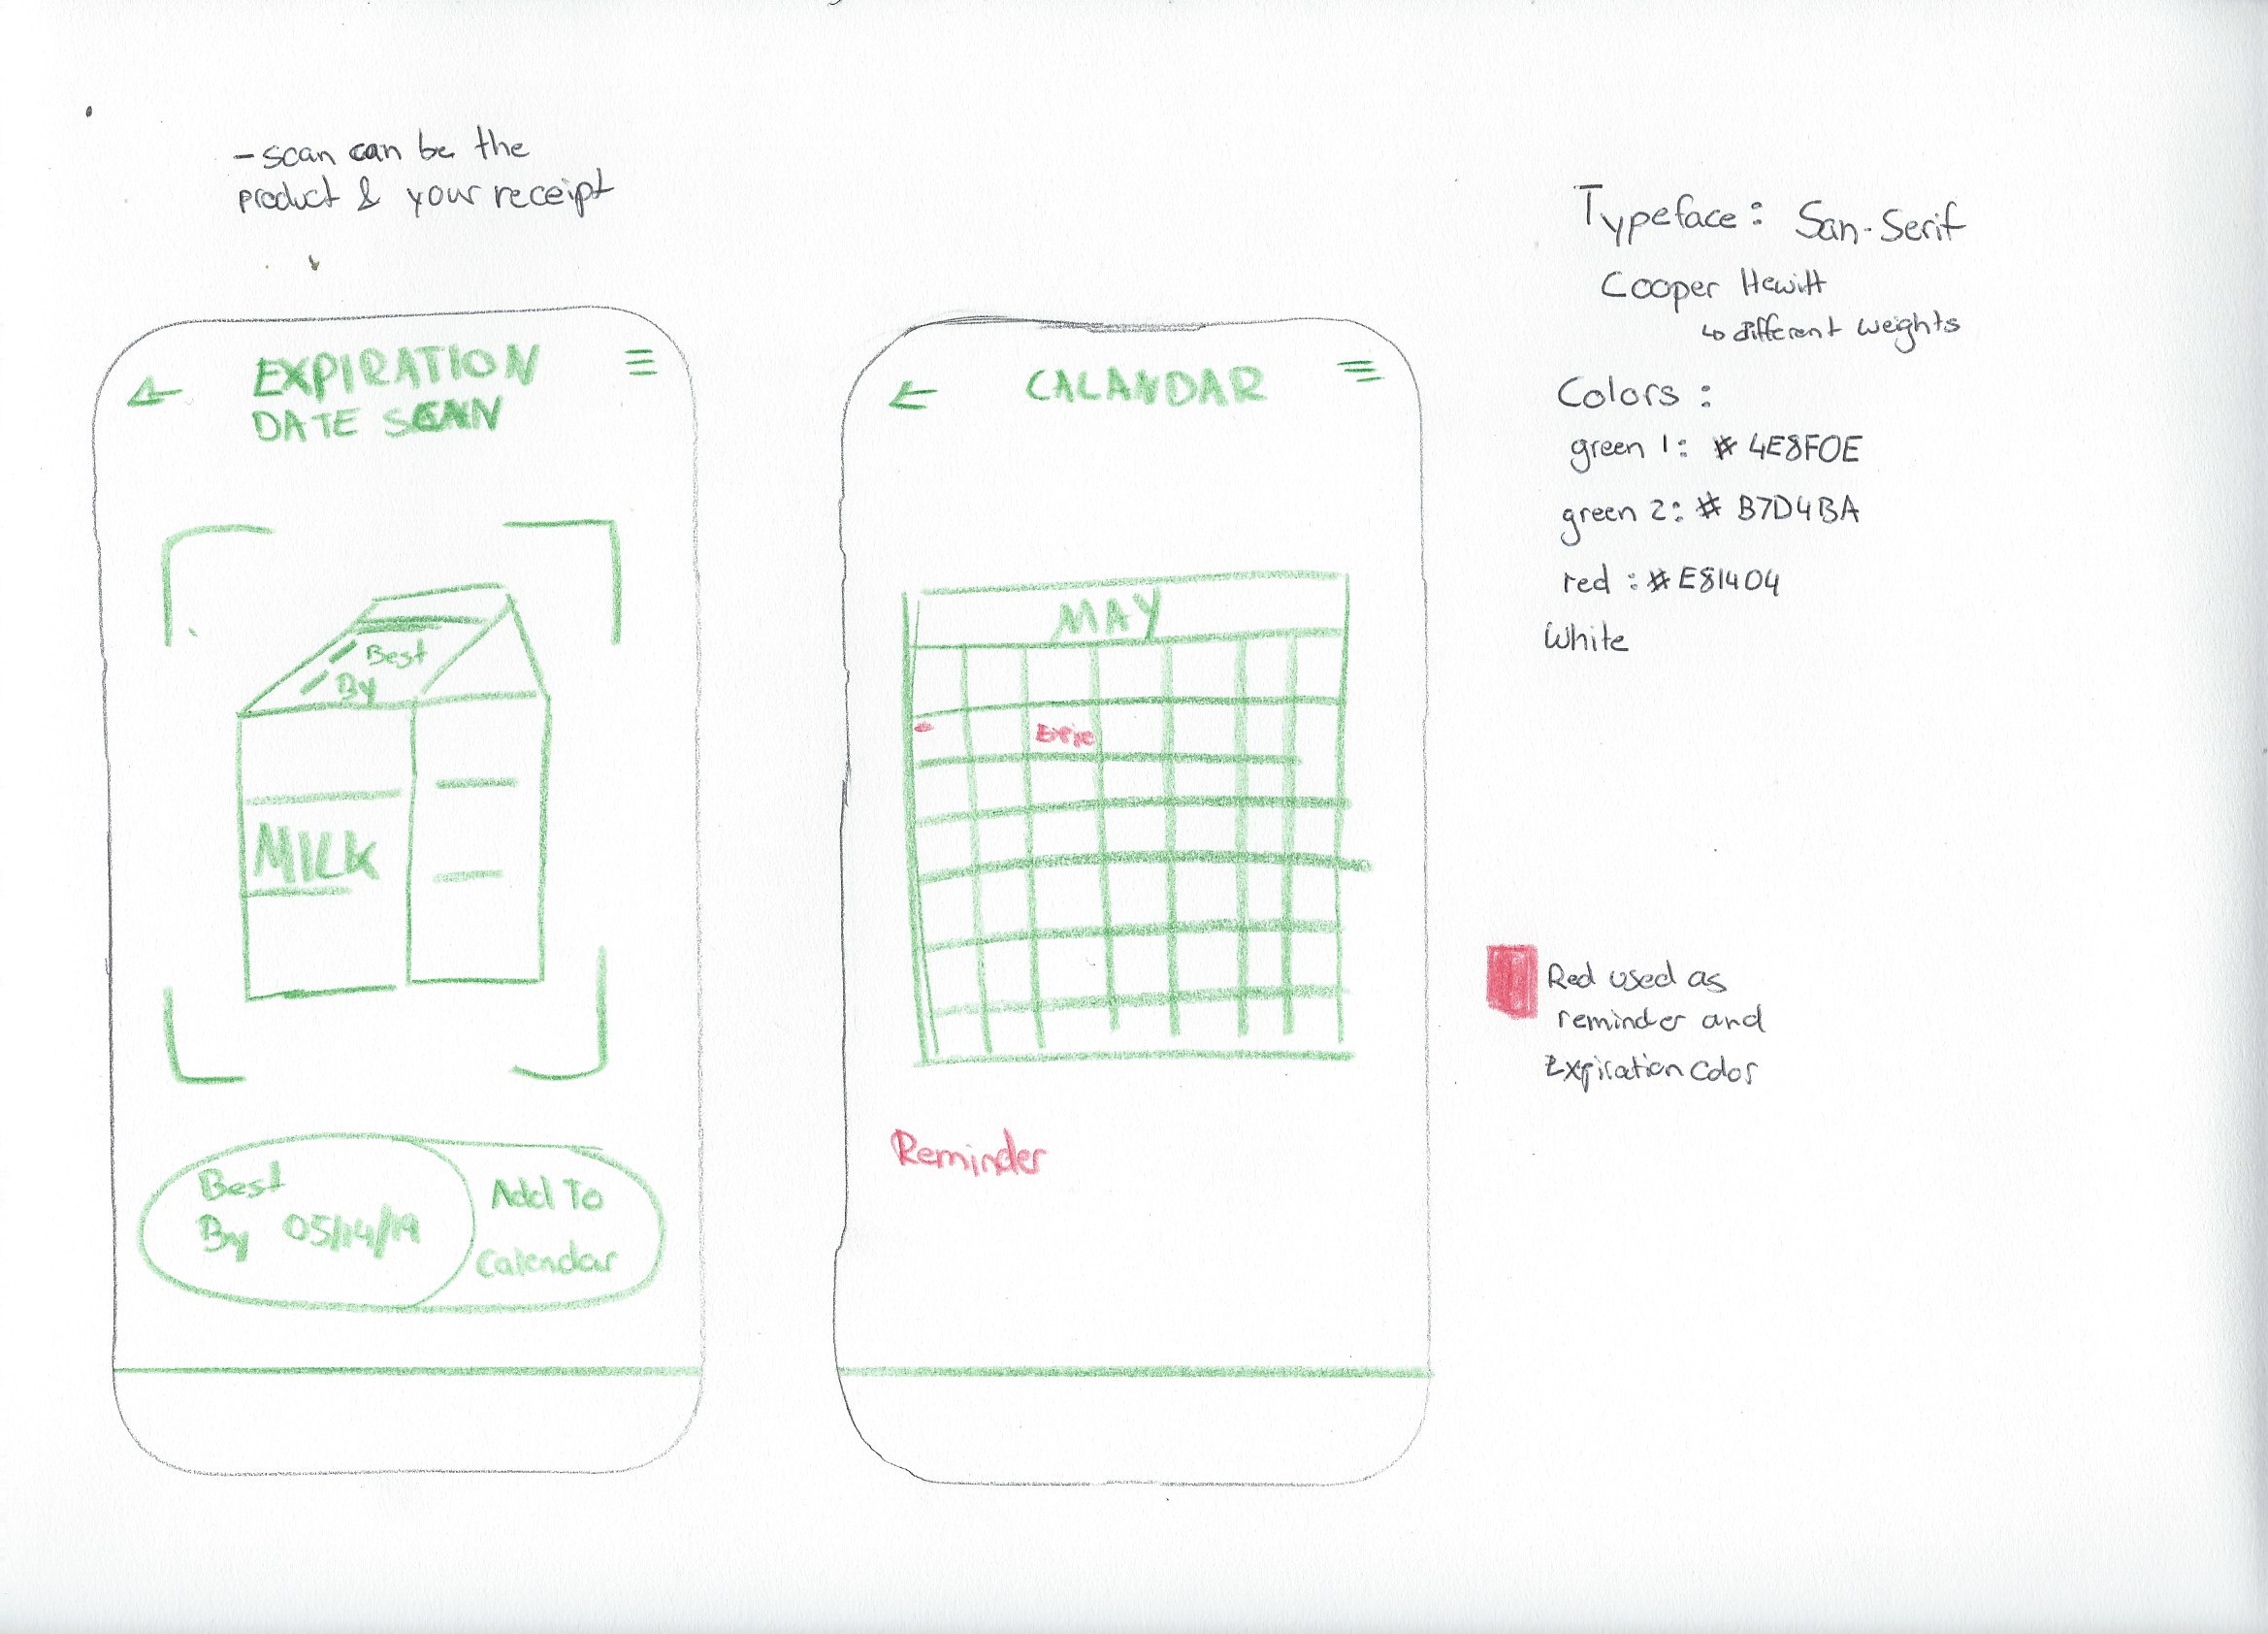 - scan can be the
product & your receipt
EXPIRATION
DATE SCAN
Best
By
MILK
Best
By 05/14/19
Add To
Calendar
CALANDAR
MAY
Expire
Reminder
Typeface: San-Serif
Cooper Hewitt
↳ different weights
Colors:
green 1: #4E8F0E
green 2: #B7D4BA
red: #E81404
White
Red used as
reminder and
Expiration color